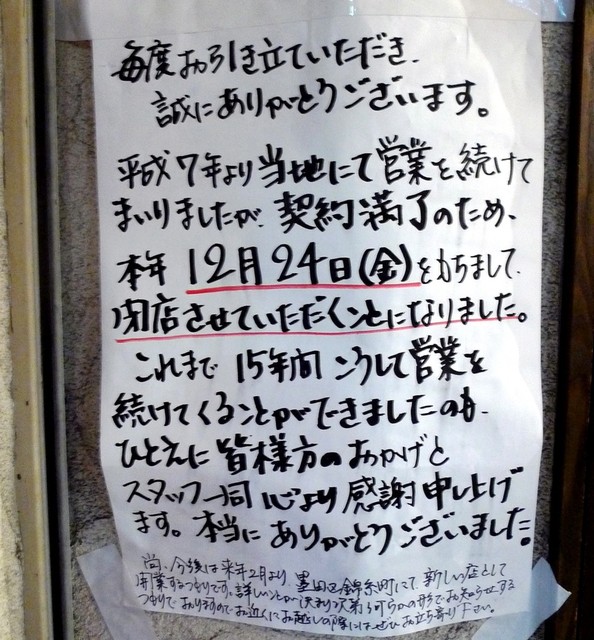 毎度お引き立ていただき、
誠にありがとうございます。
平成7年より当地にて営業を続けて
まいりましたが、契約満了のため、
本年 12月24日(金)をもちまして、
閉店させていただくことになりました。
これまで 15年間 こうして営業を
続けてくることができましたのも、
ひとえに皆様方のおかげと
スタッフ一同 心より感謝申し上げ
ます。本当にありがとうございました。
尚、今後は来年2月より、墨田区錦糸町にて、新しい店として
開業するつもりです。詳しいことが決まり次第、何らかの形でお知らせする
つもりでおりますのでお近くにお越しの際にはぜひお立ち寄り下さい。